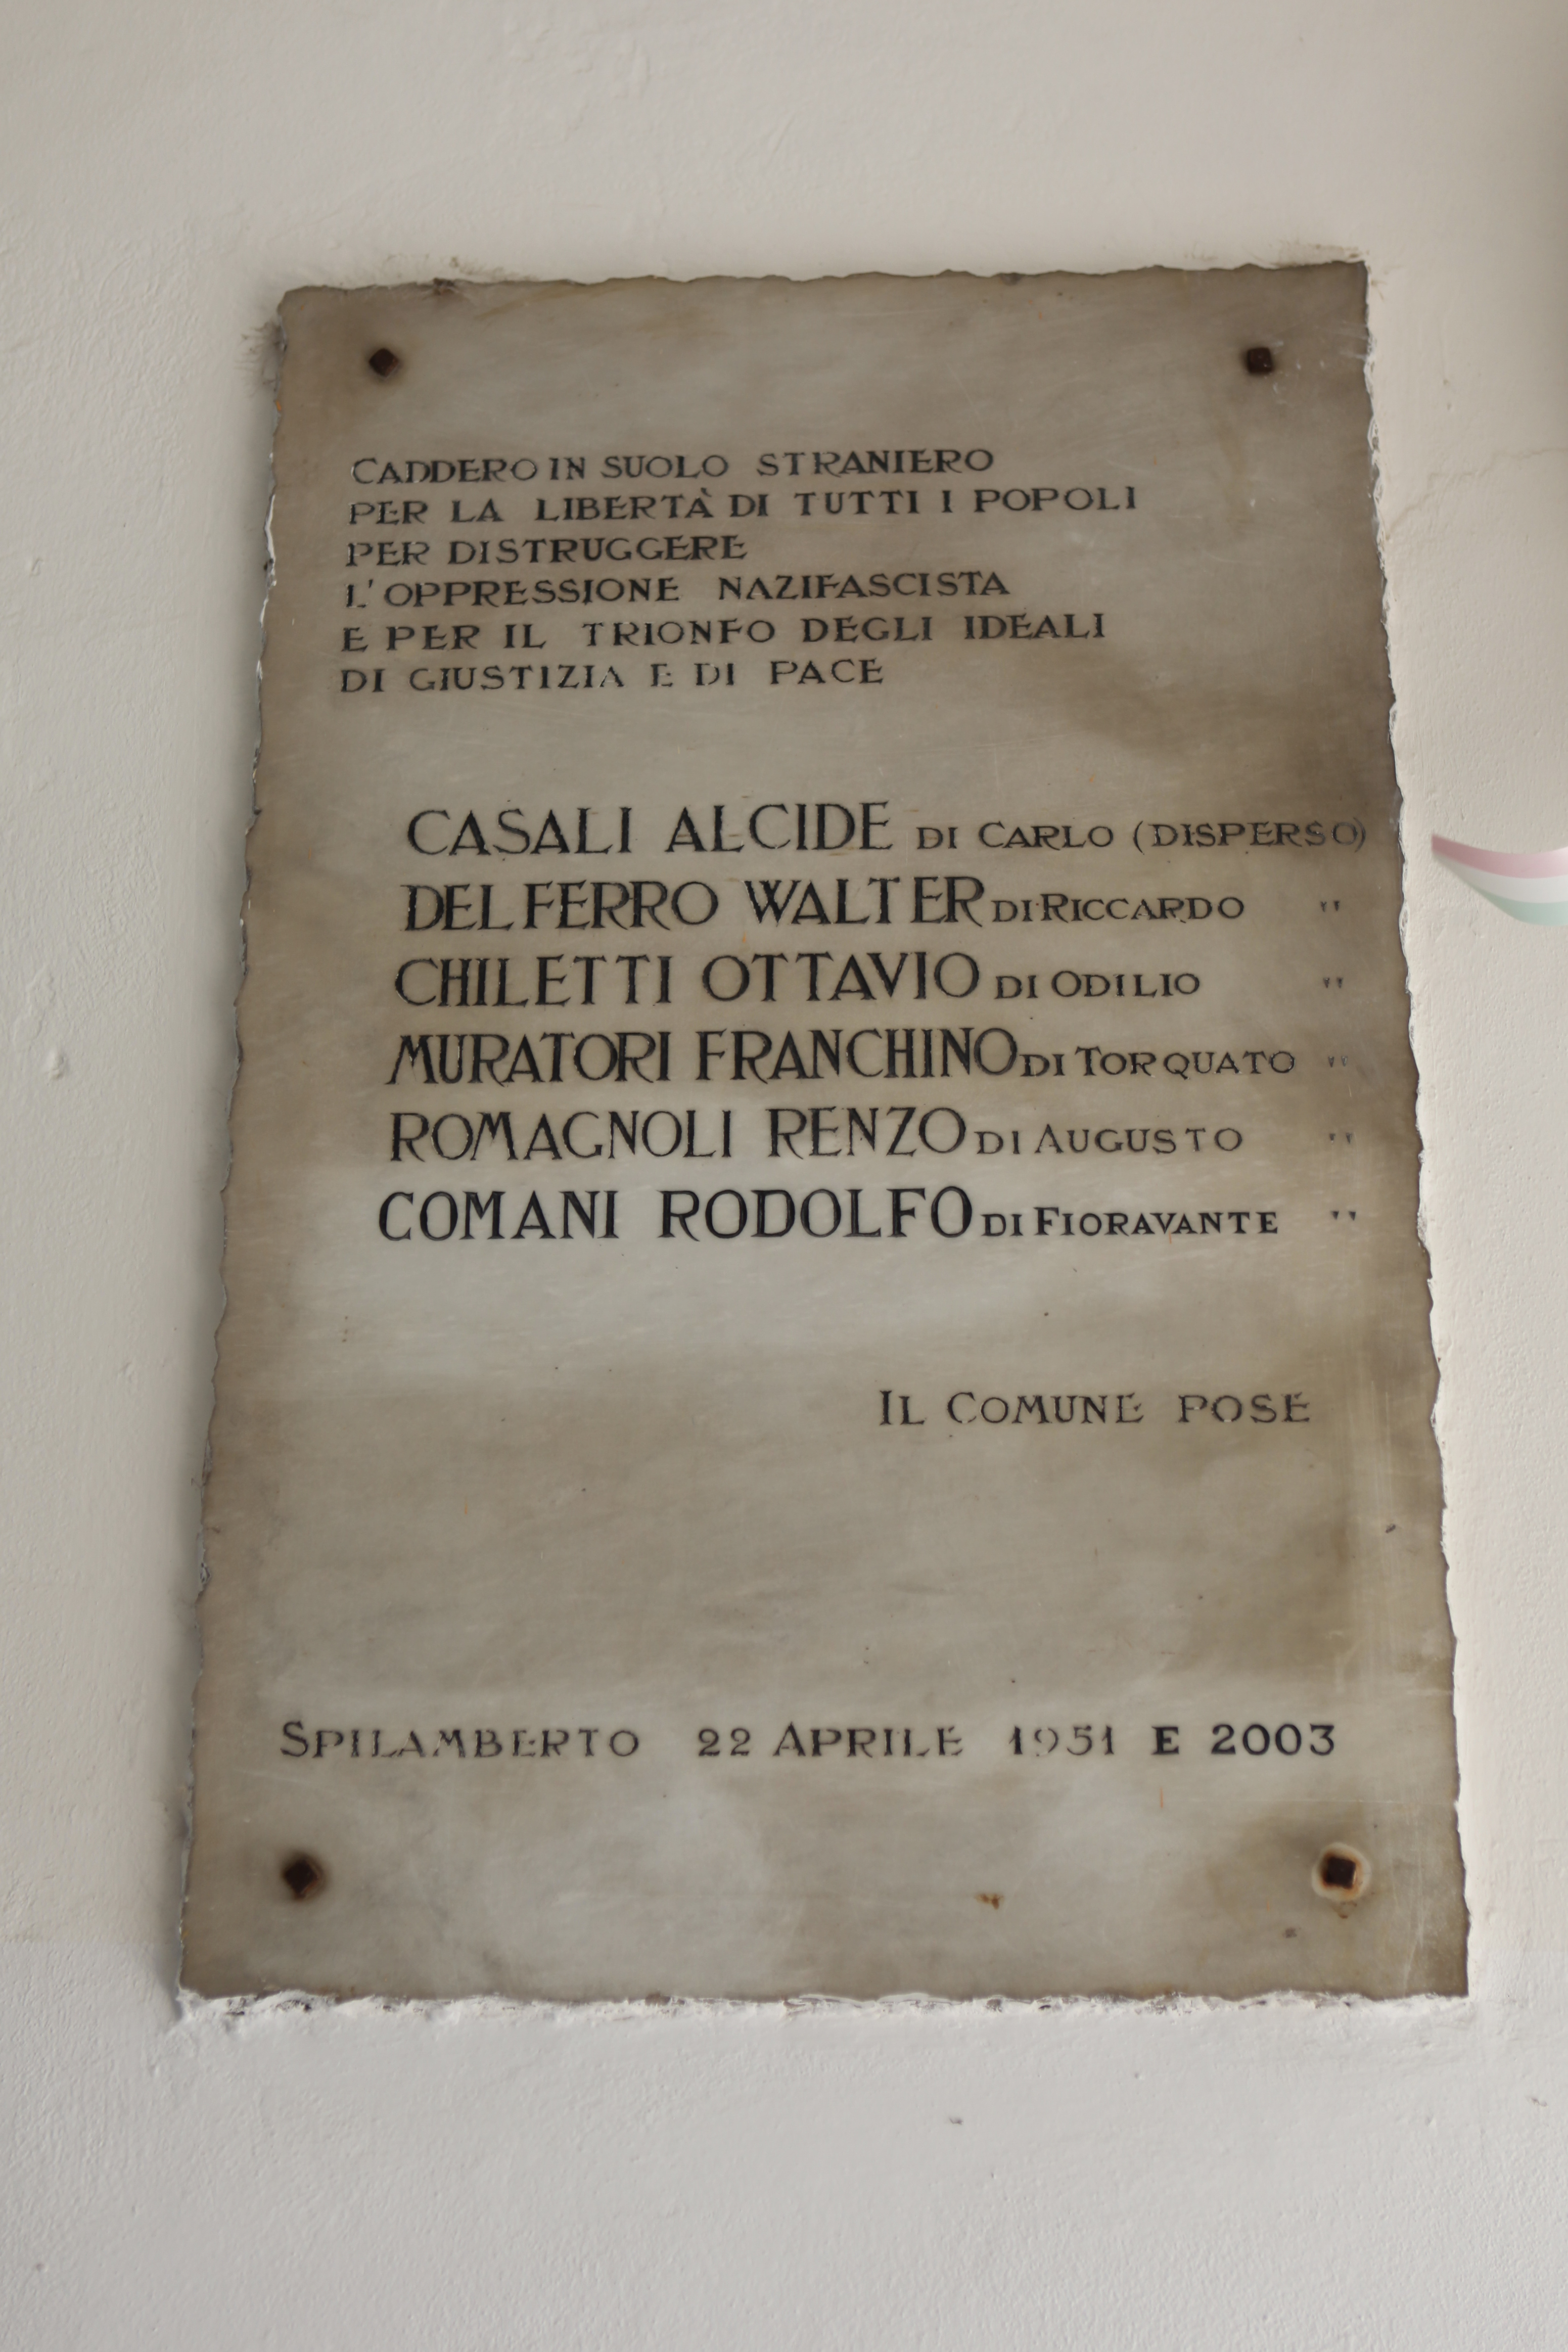 CADDERO IN SUOLO STRANIERO
PER LA LIBERTÀ DI TUTTI I POPOLI
PER DISTRUGGERE
L'OPPRESSIONE NAZIFASCISTA
E PER IL TRIONFO DEGLI IDEALI
DI GIUSTIZIA E DI PACE
CASALI ALCIDE DI CARLO (DISPERSO)
DEL FERRO WALTER DI RICCARDO "
CHILETTI OTTAVIO DI ODILIO "
MURATORI FRANCHINO DI TORQUATO "
ROMAGNOLI RENZO DI AUGUSTO "
COMANI RODOLFO DI FIORAVANTE "
IL COMUNE POSE
SPILAMBERTO 22 APRILE 1951 E 2003